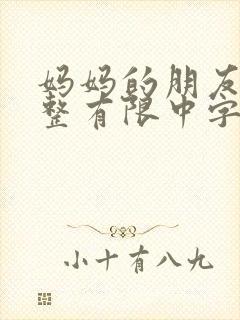 妈妈的朋友
整有限中字
小十有八九